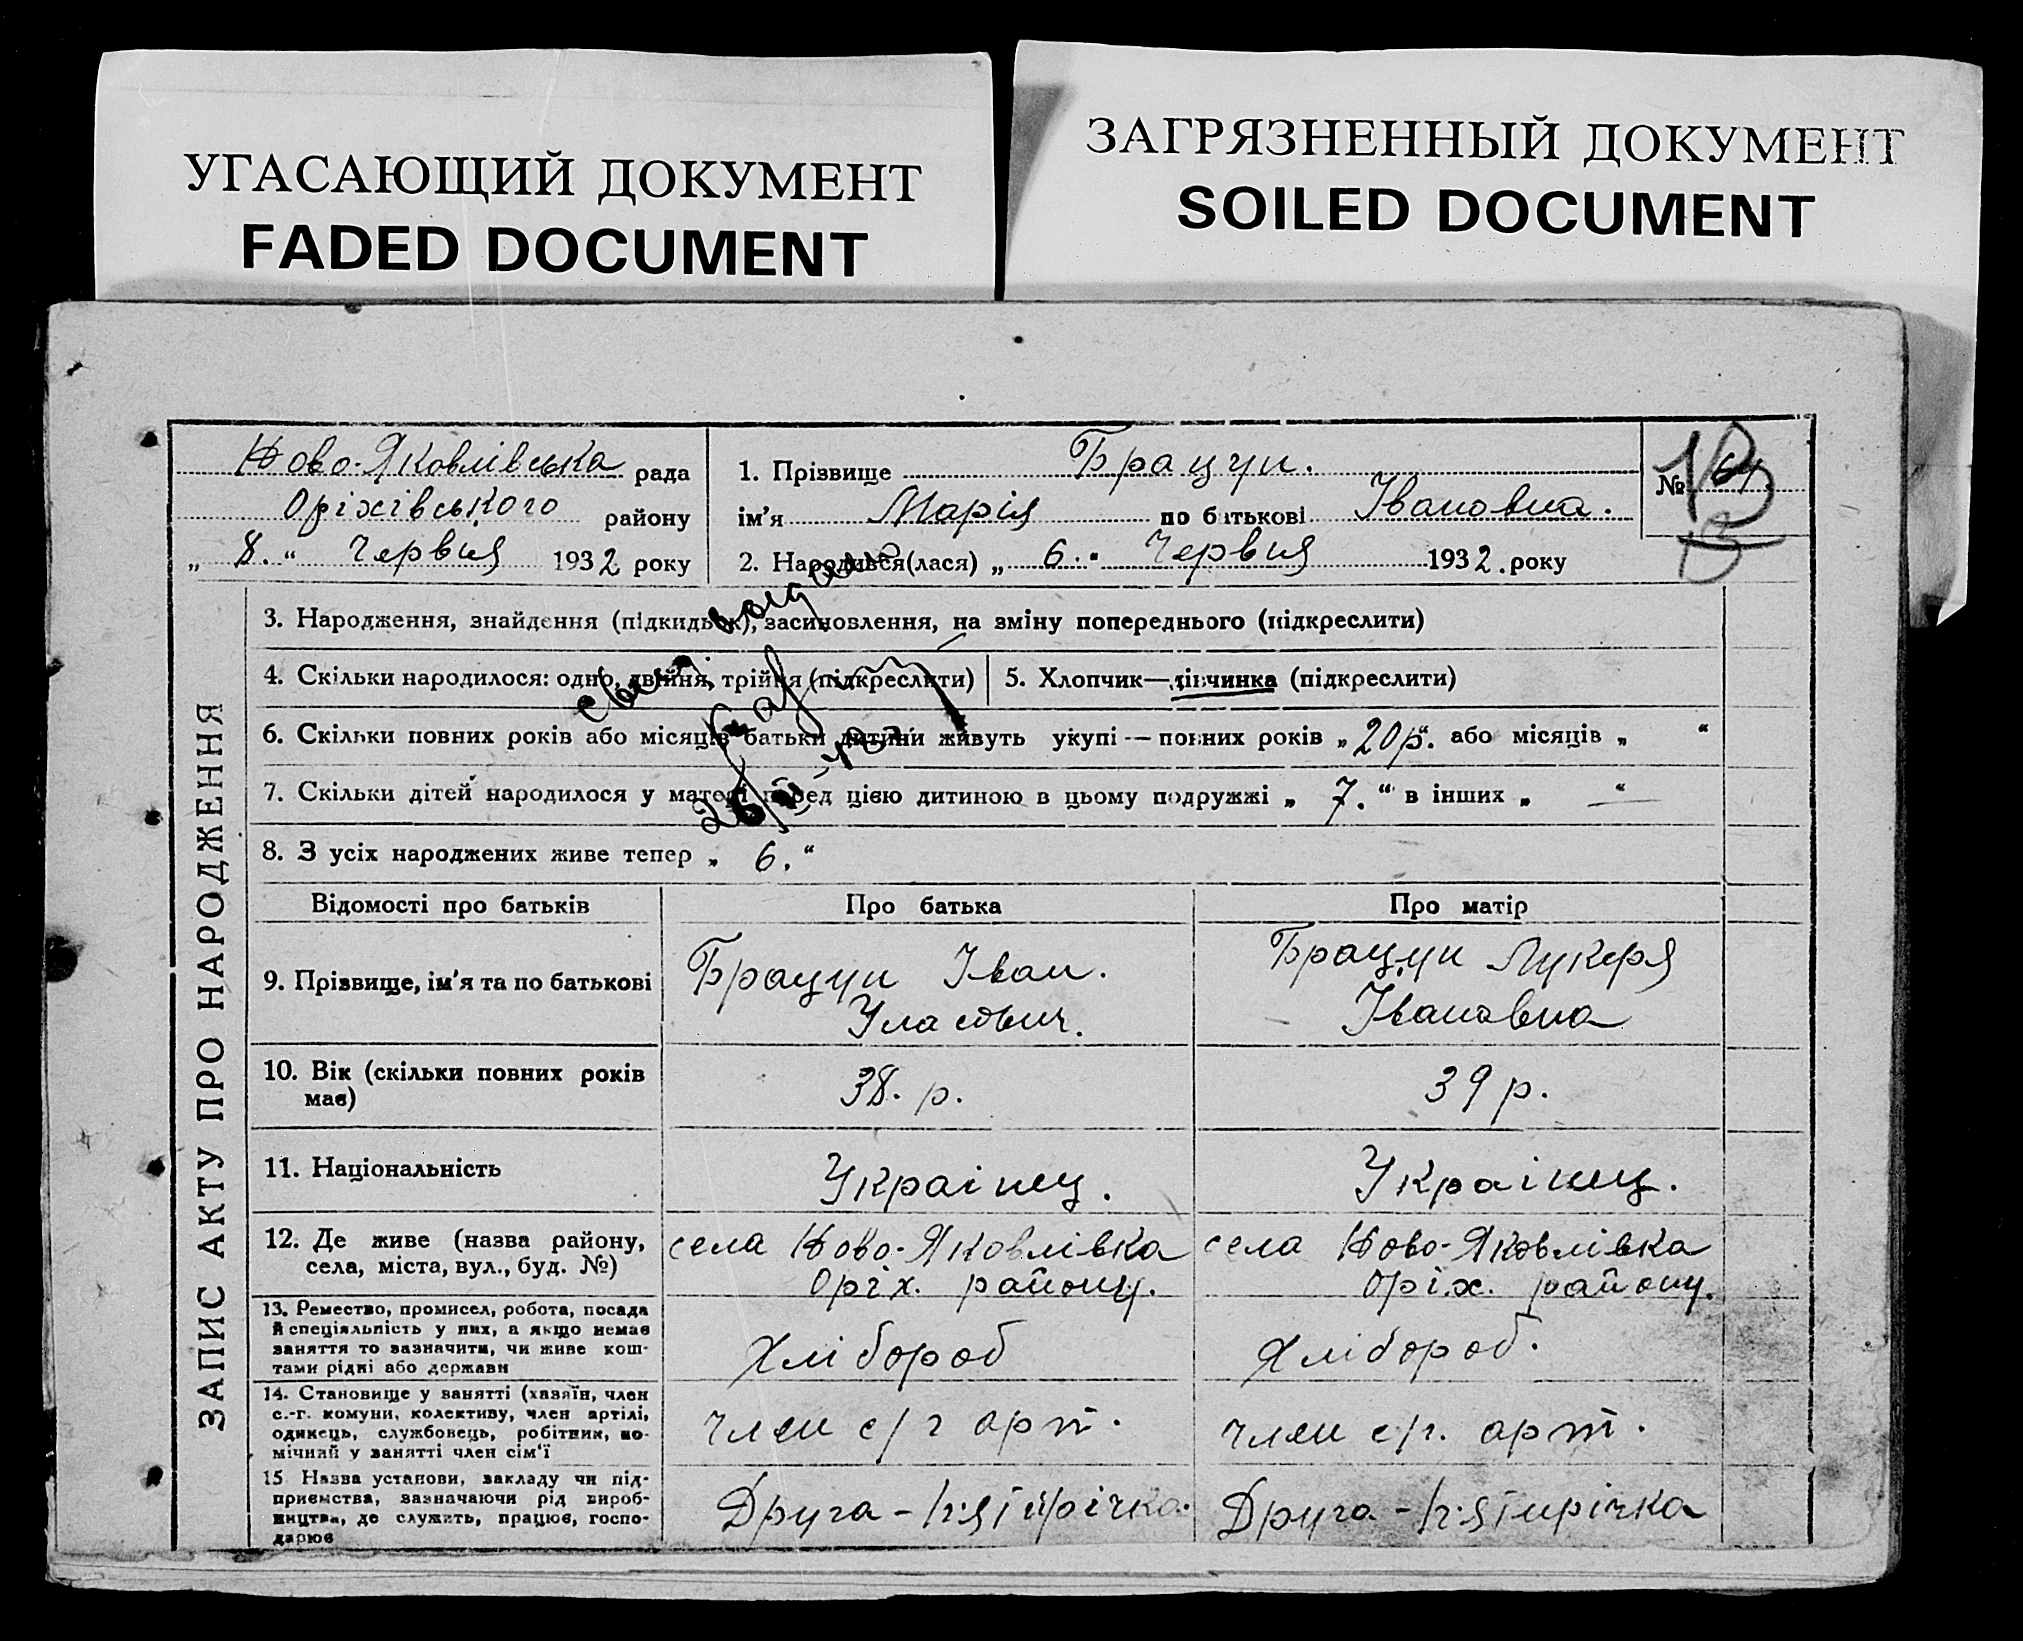 УГАСАЮЩИЙ ДОКУМЕНТ
FADED DOCUMENT
ЗАГРЯЗНЕННЫЙ ДОКУМЕНТ
SOILED DOCUMENT
Ново-Яковлівська рада
Оріхівського району
„ 8. “ Червня 1932 року
1. Прізвище Брацун.
ім’я Марія по батькові Івановна.
2. Народився(лася) „ 6. “ Червня 1932. року
№ 64
ЗАПИС АКТУ ПРО НАРОДЖЕННЯ
3. Народження, знайдення (підкидьок), засиновлення, на зміну попереднього (підкреслити)
4. Скільки народилося: одно, двійня, трійня (підкреслити)
5. Хлопчик—дівчинка (підкреслити)
6. Скільки повних років або місяців батьки дитини живуть укупі — повних років „ 20р. “ або місяців „ “
7. Скільки дітей народилося у матері перед цією дитиною в цьому подружжі „ 7. “ в інших „ — “
8. З усіх народжених живе тепер „ 6. “
Відомості про батьків Про батька Про матір
9. Прізвище, ім’я та по батькові
Брацун Іван.
Уласович.
Брацун Лукеря
Івановна
10. Вік (скільки повних років
має)
38. р.
39 р.
11. Національність
Українц.
Українц.
12. Де живе (назва району,
села, міста, вул., буд. №)
села Ново-Яковлівка
Оріх. району.
села Ново-Яковлівка
Оріх. району.
13. Ремество, промисел, робота, посада
й спеціяльність у них, а якщо немає
заняття то зазначити, чи живе кош-
тами рідні або держави
Хлібороб
Хлібороб.
14. Становище у занятті (хазяїн, член
с.-г. комуни, колективу, член артілі,
одинець, службовець, робітник, по-
мічний у занятті член сім’ї
член с/г арт.
член с/г. арт.
15 Назва установи, закладу чи під-
приємства, зазначаючи рід вироб-
ництва, де служить, працює, госпо-
дарює
Друга-п'ятирічка.
Друга-п'ятирічка